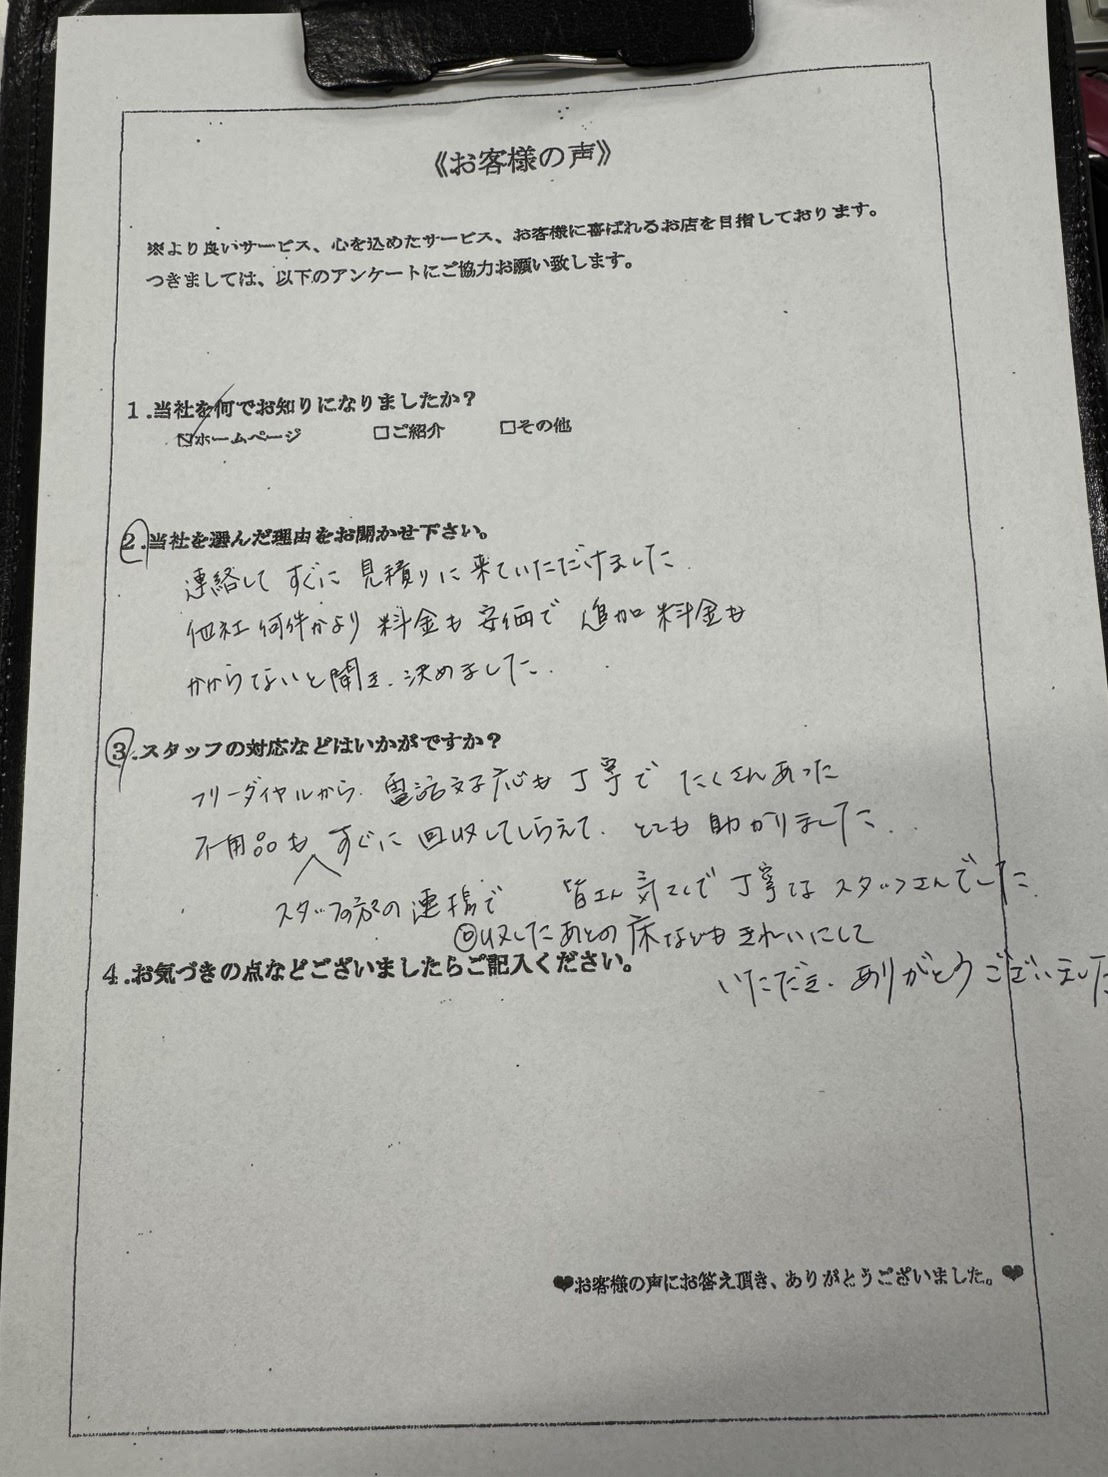 《お客様の声》
※より良いサービス、心を込めたサービス、お客様に喜ばれるお店を目指しております。
つきましては、以下のアンケートにご協力お願い致します。
1.当社を何でお知りになりましたか?
☑ホームページ □ご紹介 □その他
2.当社を選んだ理由をお聞かせ下さい。
連絡して すぐに 見積りに 来ていただけました.
他社何件かより 料金も 安価で 追加料金も
かからないと聞き、決めました.
3.スタッフの対応などはいかがですか?
フリーダイヤルから、電話対応も 丁寧で たくさんあった
不用品も すぐに 回収してもらえて、とても 助かりました.
スタッフの方の連携で 皆さん 気さくで 丁寧な スタッフさんでした.
回収したあとの床なども きれいにして
4.お気づきの点などございましたらご記入ください。
いただき、ありがとうございました
❤お客様の声にお答え頂き、ありがとうございました。❤